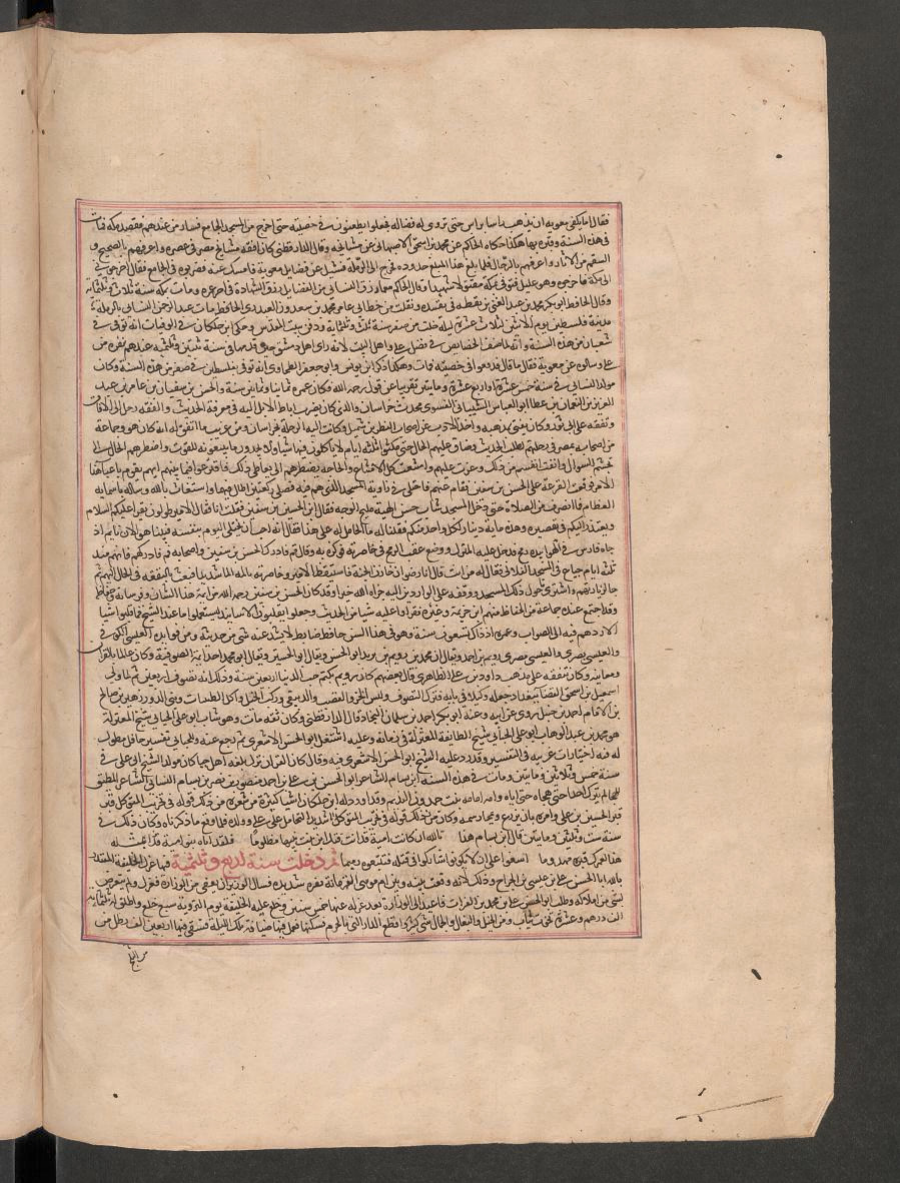 فقال اما يكفى معويه ان يذهب راسا براس حتى تروى له فضاله فجعلوا يطعنون فى خصيته حتى اخرج من المسجد الجامع فسار من عندهم فقصد مكه فمات
فى هذه السنة وقبره بها هكذا حكاه الحاكم عن محمد بن اسحق الاصبهانى عن مشايخه وقال الدارقطنى كان افقه مشايخ مصر فى عصره واعرفهم بالصحيح و
السقيم من الاثار واعرفهم بالرجال فلما بلغ هذا المبلغ حسدوه فخرج الى الرملة فسئل عن فضايل معوية فامسك عنه فضربوه فى الجامع فقال اخرجونى
الى مكة فاخرجوه وهو عليل فتوفى بمكة مقتولا شهيدا قال الحاكم مع ما رزق النسائى من الفضايل رزق الشهادة فى اخر عمره ومات بمكه سنة ثلاث وثلثماية
وقال الحافظ ابو بكر محمد بن عبد الغنى بن نقطه فى تقييده ونقلت من خط ابى عامر محمد بن سعدون العبدرى الحافظ مات عبد الرحمن النسائى بالرملة
مدينة فلسطين يوم الاثنين لثلاث عشرة ليلة خلت من صفر سنة ثلث وثلثماية ودفن ببيت المقدس وحكى ابن خلكان انه توفى فى
شعبان من هذه السنة وانه انما صنف الخصايص فى فضل على واهل البيت لانه راى اهل دمشق حين قدمها فى سنة ثنتين وثلثمية عندهم نفرة من
على وسالوه عن معوية فقال ما قال فدفعوا فى خصيتيه فمات وهكذا ذكر ابن يونس وابو جعفر الطحاوى انه توفى بفلسطين فى صفر من هذه السنة وكان
مولد النسائى فى سنة خمس عشرة او اربع عشرة ومايتين تقريبا عن قوله رحمه الله فكان عمره ثمانيا وثمانين سنة والحسن بن سفيان بن عامر بن عبد
العزيز بن النعمان بن عطا ابو العباس الشيبانى النسوى محدث خراسان والذى كان يضرب اباط الابل اليه فى معرفة الحديث والفقه رحل الى الافاق
وتفقه على ابى ثور وكان يفتى بمذهبه واخذ الادب عن اصحاب النضر بن شميل وكانت اليه الرحلة بخراسان ومن غريب ما اتفق له انه كان هو وجماعة
من اصحابه بمصر فى رحلتهم لطلب الحديث وضاق عليهم الحال حتى مكثوا ثلثة ايام لا ياكلون فيها شيا ولا يجدون ما يبيعونه للقوت واضطرهم الحال الى
تجشم السوال وانفت انفسهم من ذلك وعزت عليهم وامتنعت كل الامتناع والحاجه تضطرهم الى تعاطى ذلك فاقترعوا فيما بينهم ايهم يقوم باعبا هذا
الامر فوقعت القرعة على الحسن بن سفين فقام عنهم فاختلى فى زاوية المسجد الذى هم فيه فصلى ركعتين اطال فيهما واستغاث بالله وساله باسمايه
العظام فما انصرف من الصلاة حتى دخل المسجد شاب حسن الهيئة مليح الوجه فقال اين الحسن بن سفين فقلت انا فقال الامير طولون يقرا عليكم السلام
ويعتذر اليكم فى تقصيره وهذه ماية دينار لكل واحد منكم فقلنا له ما الحامل له على هذا فقال انه احب ان يختلى اليوم بنفسه فبينا هو الان نايم اذ
جاه فارس فى الهوا بيده رمح فدخل عليه المنزل ووضع عقب الرمح فى خاصرته فوكزه به وقال قم فادرك الحسن بن سفين واصحابه قم فادركهم فانهم منذ
ثلثة ايام جياع فى المسجد الفلانى فقال له من انت قال انا رضوان خازن الجنة فاستيقظ الامير وخاصرته تالمه الما شديدا فبعث بالنفقه فى الحال اليهم ثم
جا لزيارتهم واشترى ما حول ذلك المسجد ووقفه على الواردين اليه جزاه الله خيرا وقد كان الحسن بن سفين رحمه الله من ايمة هذا الشان وفرسانه وحفاظه
وقد اجتمع عنده جماعة من الحفاظ منهم ابن خزيمة وغيره فقراوا عليه شيا من الحديث وجعلوا يقلبون الاسانيد ليستعلموا ما عند الشيخ فما قلبوا شيا
الا ردهم فيه الى الصواب وعمره اذ ذاك تسعون سنة وهو فى هذا السن حافظ ضابط لا يشذ عنه شى من حديثه ومن فوايده العبسى كوفى
والعيشى بصرى والعنسى مصرى رويم بن احمد ويقال ابن محمد بن رويم بن يزيد ابو الحسن ويقال ابو الحسين ويقال ابو محمد احد ايمة الصوفية وكان عالما بالقران
ومعانيه وكان يتفقه على مذهب داود بن على الظاهرى قال بعضهم كان رويم يكتم حب الدنيا اربعين سنة وذلك انه تصوف اربعين ثم لما ولى
اسمعيل بن اسحق القضا ببغداد جعله وكيلا فى بابه فترك التصوف ولبس الخز والقصب والدبيقى وركب الخيل واكل الطيبات وبنى الدور زهير بن صالح
بن الامام احمد بن حنبل روى عن ابيه وعنه ابو بكر احمد بن سلمان النجاد قال الدارقطنى وكان ثقه مات وهو شاب ابو على الجبائى شيخ المعتزلة
هو محمد بن عبد الوهاب ابو على الجبائى شيخ الطايفة المعتزلة فى زمانه وعليه اشتغل ابو الحسن الاشعرى ثم رجع عنه وللجبائى تفسير حافل مطول
له فيه اختيارات غريبه فى التفسير وقد رد عليه الشيخ ابو الحسن الاشعرى فيه وقال كان القران نزل بلغة اهل جبا كان مولد الشيخ ابى على فى
سنة خمس وثلاثين ومايتين ومات فى هذه السنة ابن بسام الشاعر ابو الحسن بن على بن احمد منصور بن نصر بن بسام البسامى الشاعر المطبق
للهجا لم يترك احدا حتى هجاه حتى اباه وامه امامه بنت حمدون النديم وقد اورد له ابن خلكان اشيا كثيرة من شعره من ذلك قوله فى تخريب المتوكل قبر
قبر الحسين بن على وامره بان يزرع ويمحا رسمه وكان من ذلك قوله فى تخريب المتوكل شديد التحامل على على وولده فلما وقع ما ذكرناه وكان ذلك فى
سنة ست وثلثين ومايتين قال ابن بسام هذا تالله ان كانت امية قد اتت قتل ابن بنت نبيها مظلوما فلقد اتاه بنو ابيه بمثله
هذا لعمرك قبره مهدوما اسفوا على ان لا يكونوا شاركوا فى قتله فتتبعوه رميما ثم دخلت سنة اربع وثلثمية فيها عزل الخليفة المقتدر
بالله ابا الحسن على بن عيسى بن الجراح وذلك لانه وقعت بينه وبين ام موسى القهرمانة نفرة شديده فسال الوزير ان يعفى من الوزارة فعزل ولم يتعرض
لشى من املاكه وطلب ابو الحسن على بن محمد بن الفرات فاعيد الى الوزارة بعد عزله عنها خمس سنين وخلع عليه الخليفة يوم التروية سبع خلع واطلق له ثلثماية
الف درهم وعشرة تخوت ثياب ومن الخيل والبغال والجمال شى كثير واقطع الدار التى بالمخرم فسكنها فعمل فيها ضيافة تلك الليلة فسقى فيها اربعين الف رطل من
من الثلج